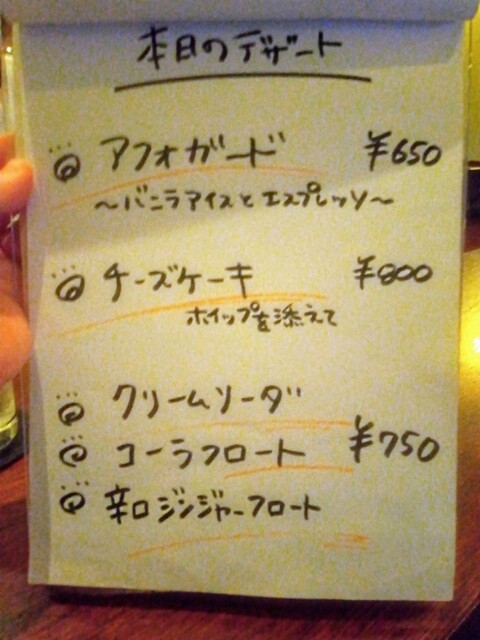 本日のデザート
アフォガード ¥650
〜バニラアイスとエスプレッソ〜
チーズケーキ ¥800
ホイップを添えて
クリームソーダ
コーラフロート ¥750
辛口ジンジャーフロート